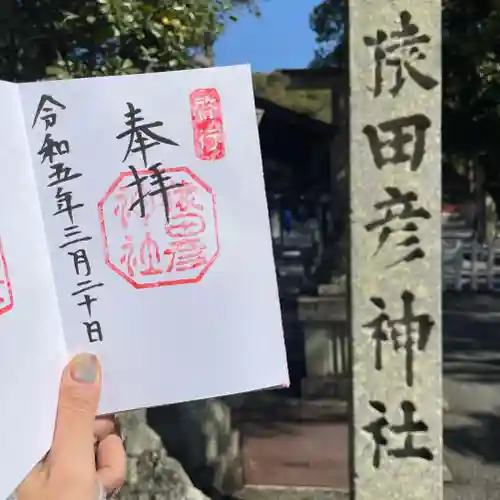 啓行
奉拝
猿田彦
神社
令和五年三月二十日
猿田彦神社